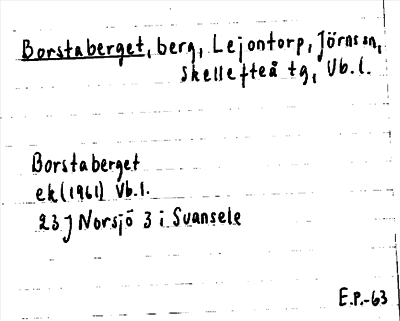 Borstaberget, berg, Lejontorp, Jörns sn,
Skellefteå tg, Vb.l.
Borstaberget
ek (1961) Vb.l.
23 J Norsjö 3 i Svansele
E.P.-63